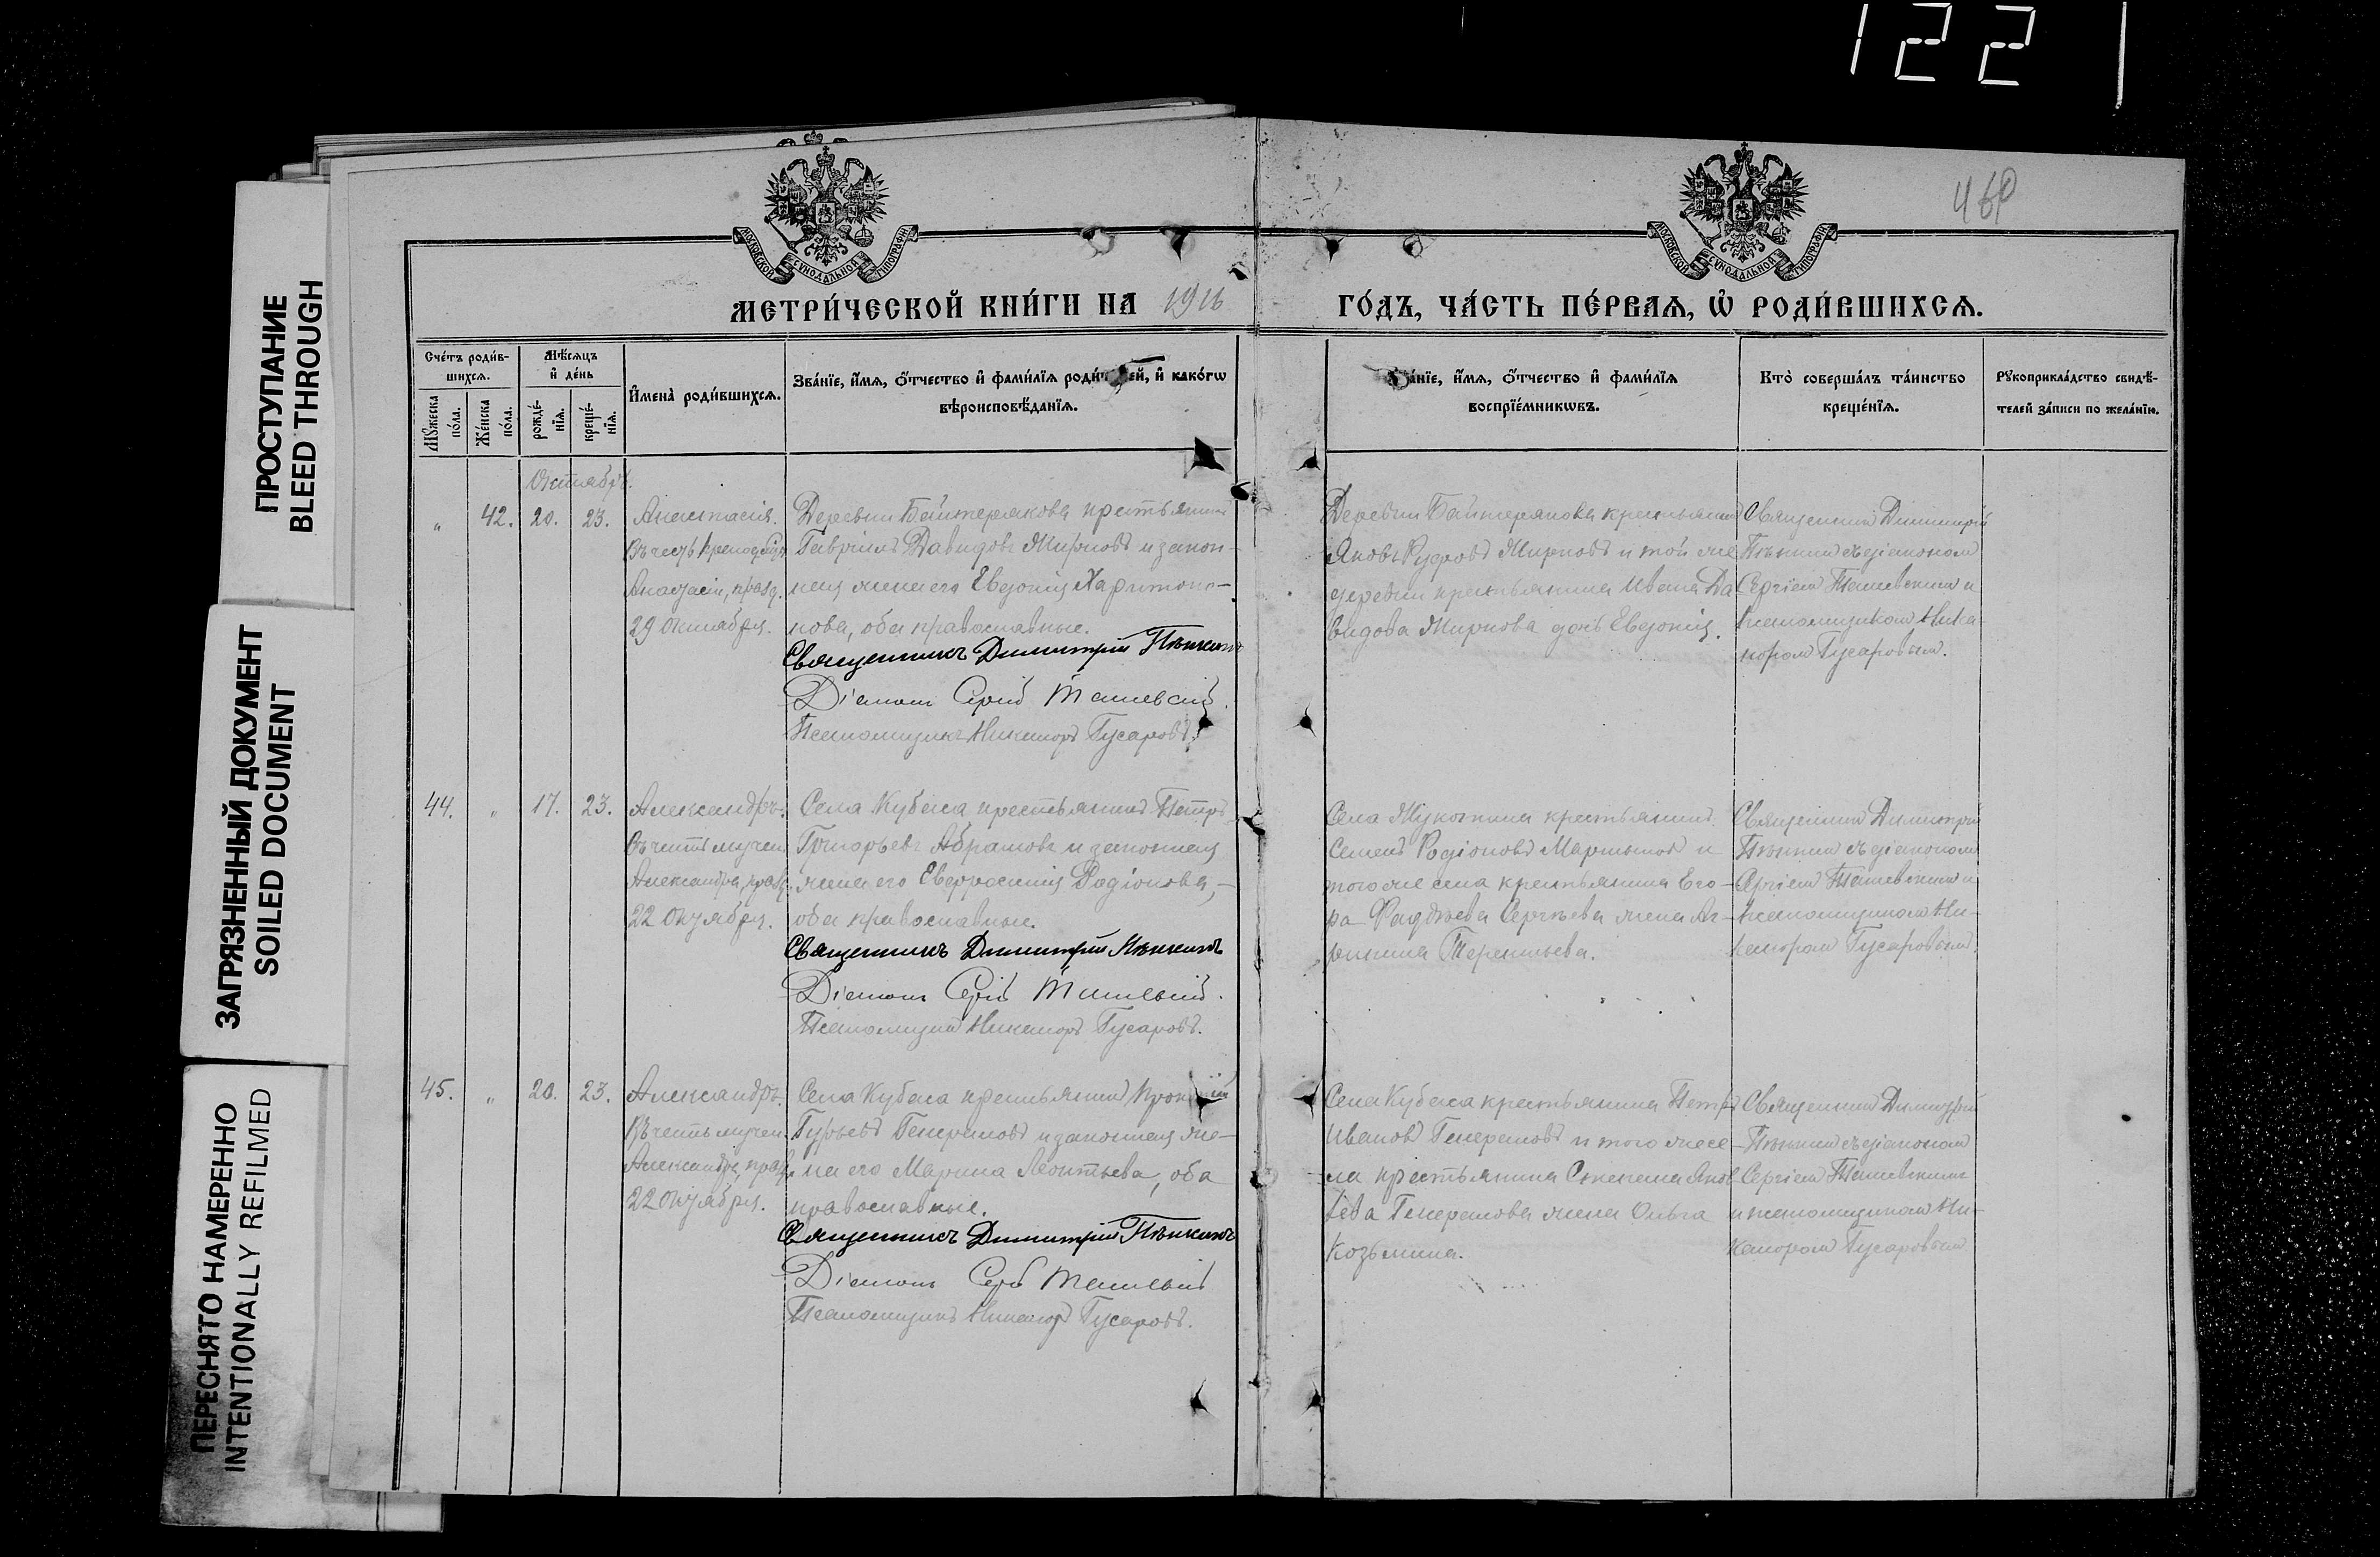 122
46
МОСКОВСКОЙ СУНОДАЛЬНОЙ ТИПОГРАФІИ
МОСКОВСКОЙ СУНОДАЛЬНОЙ ТИПОГРАФІИ
МЕТРИ́ЧЕСКОЙ КНИ́ГИ НА 1916
ГО́ДЪ, ЧА́СТЬ ПЕ́РВАѦ, Ѽ РОДИ́ВШИХСѦ.
Сче́тъ роди́в-
шихсѧ.
Мꙋжеска по́ла.
Же́нска по́ла.
Мѣ́сѧцъ
и҆ де́нь
рожде́-
нїѧ.
креще́-
нїѧ.
И҆мена̀ роди́вшихсѧ.
Зва́нїе, и҆́мѧ, ѻ҆́тчество и҆ фами́лїѧ роди́телей, и҆ како́гѡ
вѣроисповѣ́данїѧ.
Зва́нїе, и҆́мѧ, ѻ҆́тчество и҆ фами́лїѧ
воспрїе́мникѡвъ.
Кто̀ соверша́лъ та́инство
креще́нїѧ.
Рꙋкоприкла́дство свидѣ́-
телей за́писи по жела́нїю.
Октябрь.
„ 42. 20. 23.
Анастасія.
Въ честь преподобн.
Анастасіи, празд.
29 Октября.
Деревни Байтерякова крестьянинъ
Гавріилъ Давидовъ Мирновъ и закон-
ная жена его Евдокія Харитоно-
нова, оба православные.
Священникъ Димитрій Пѣнкинъ
Діаконъ Сергій Ташевскій.
Псаломщикъ Никаноръ Гусаровъ.
Деревни Байтерякова крестьянинъ
Яковъ Мирновъ и той же
деревни крестьянина Ивана Да
видова Мирнова дочь Евдокія.
Священникъ Димитрій
Пѣнкинъ съ діакономъ
Сергіемъ Ташевскимъ и
псаломщикомъ Ника-
норомъ Гусаровымъ.
44. „ 17. 23.
Александръ.
Въ честь мучен.
Александра, празд.
22 Октября.
Села Кубаса крестьянинъ Петръ
Григорьевъ Абрамовъ и законная
жена его Евфросинія Родіонова,
оба православные.
Священникъ Димитрій Пѣнкинъ
Діаконъ Сергій Ташевскій.
Псаломщикъ Никаноръ Гусаровъ.
Села крестьянинъ
Семенъ Родіоновъ Мартыновъ и
того же села крестьянина Его-
ра Фаддѣева Сергѣева жена Аг-
рипина Терентьева.
Священникъ Димитрій
Пѣнкинъ съ діакономъ
Сергіемъ Ташевскимъ и
псаломщикомъ Ни-
каноромъ Гусаровымъ.
45. „ 20. 23.
Александръ.
Въ честь мучен.
Александра, празд.
22 Октября.
Села Кубаса крестьянинъ
Гурьевъ Генераловъ и законная же-
на его Марина Леонтьева, оба
православные.
Священникъ Димитрій Пѣнкинъ
Діаконъ Сергій Ташевскій
Псаломщикъ Никаноръ Гусаровъ.
Села Кубаса крестьянинъ Петръ
Ивановъ Генераловъ и того же се-
ла крестьянина Степана Яков
лева Генералова жена Ольга
Козьмина.
Священникъ Димитрій
Пѣнкинъ съ діакономъ
Сергіемъ Ташевскимъ
и псаломщикомъ Ни-
каноромъ Гусаровымъ
ПРОСТУПАНИЕ
BLEED THROUGH
ЗАГРЯЗНЕННЫЙ ДОКУМЕНТ
SOILED DOCUMENT
ПЕРЕСНЯТО НАМЕРЕННО
INTENTIONALLY REFILMED